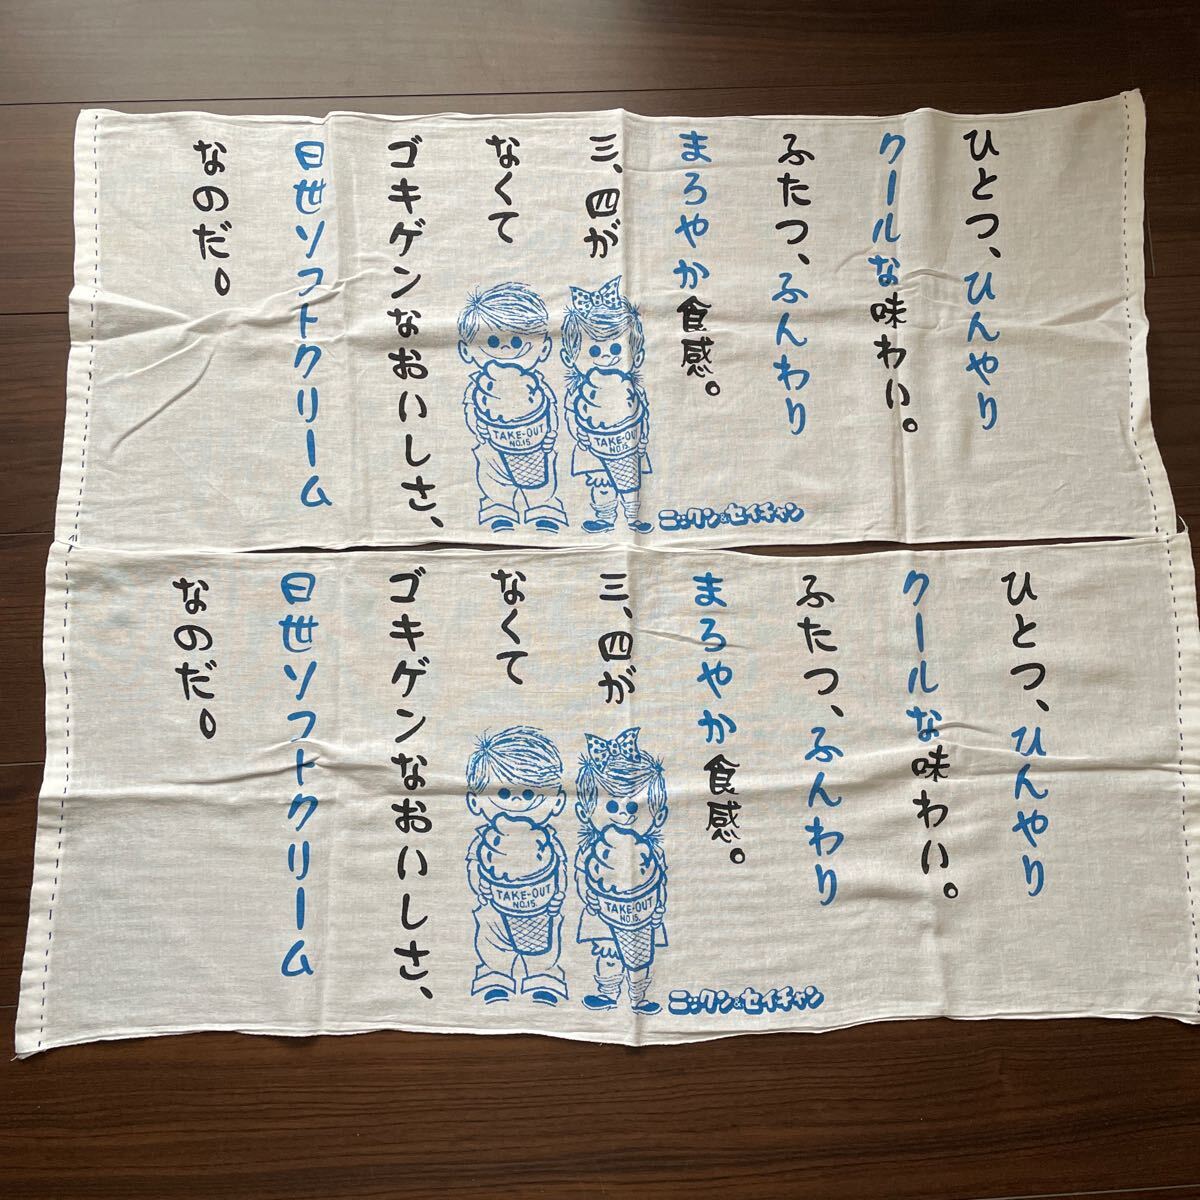 ひとつ、ひんやり
クールな味わい。
ふたつ、ふんわり
まろやか食感。
三、四が
なくて
ゴキゲンなおいしさ、
日世ソフトクリーム
なのだ。
TAKE-OUT
NO.15.
TAKE-OUT
NO.15.
ニックン&セイチャン
ひとつ、ひんやり
クールな味わい。
ふたつ、ふんわり
まろやか食感。
三、四が
なくて
ゴキゲンなおいしさ、
日世ソフトクリーム
なのだ。
TAKE-OUT
NO.15.
TAKE-OUT
NO.15.
ニックン&セイチャン